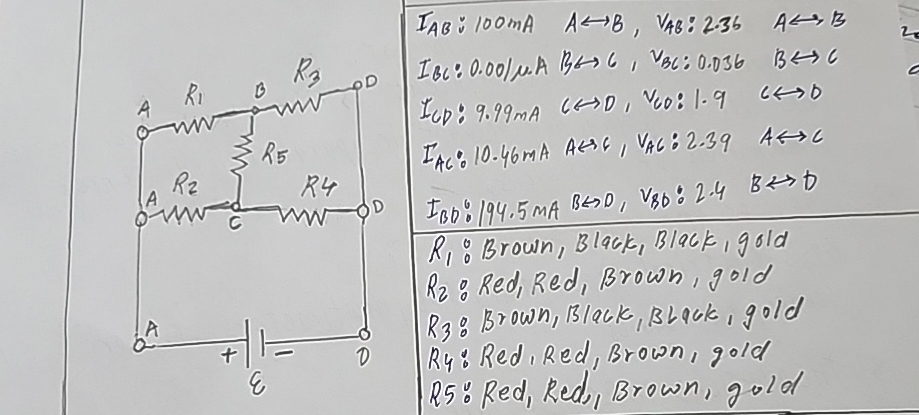 I_AB: 100mA A↔B, V_AB: 2.36 A↔B
I_BC: 0.001μA B↔C, V_BC: 0.036 B↔C
I_CD: 9.99mA C↔D, V_CD: 1.9 C↔D
I_AC: 10.46mA A↔C, V_AC: 2.39 A↔C
I_BD: 194.5mA B↔D, V_BD: 2.4 B↔D
R1: Brown, Black, Black, gold
R2: Red, Red, Brown, gold
R3: Brown, Black, Black, gold
R4: Red, Red, Brown, gold
R5: Red, Red, Brown, gold
R3
A R1 B D
R5
A R2 R4 D
C
A
+ −
D
ε